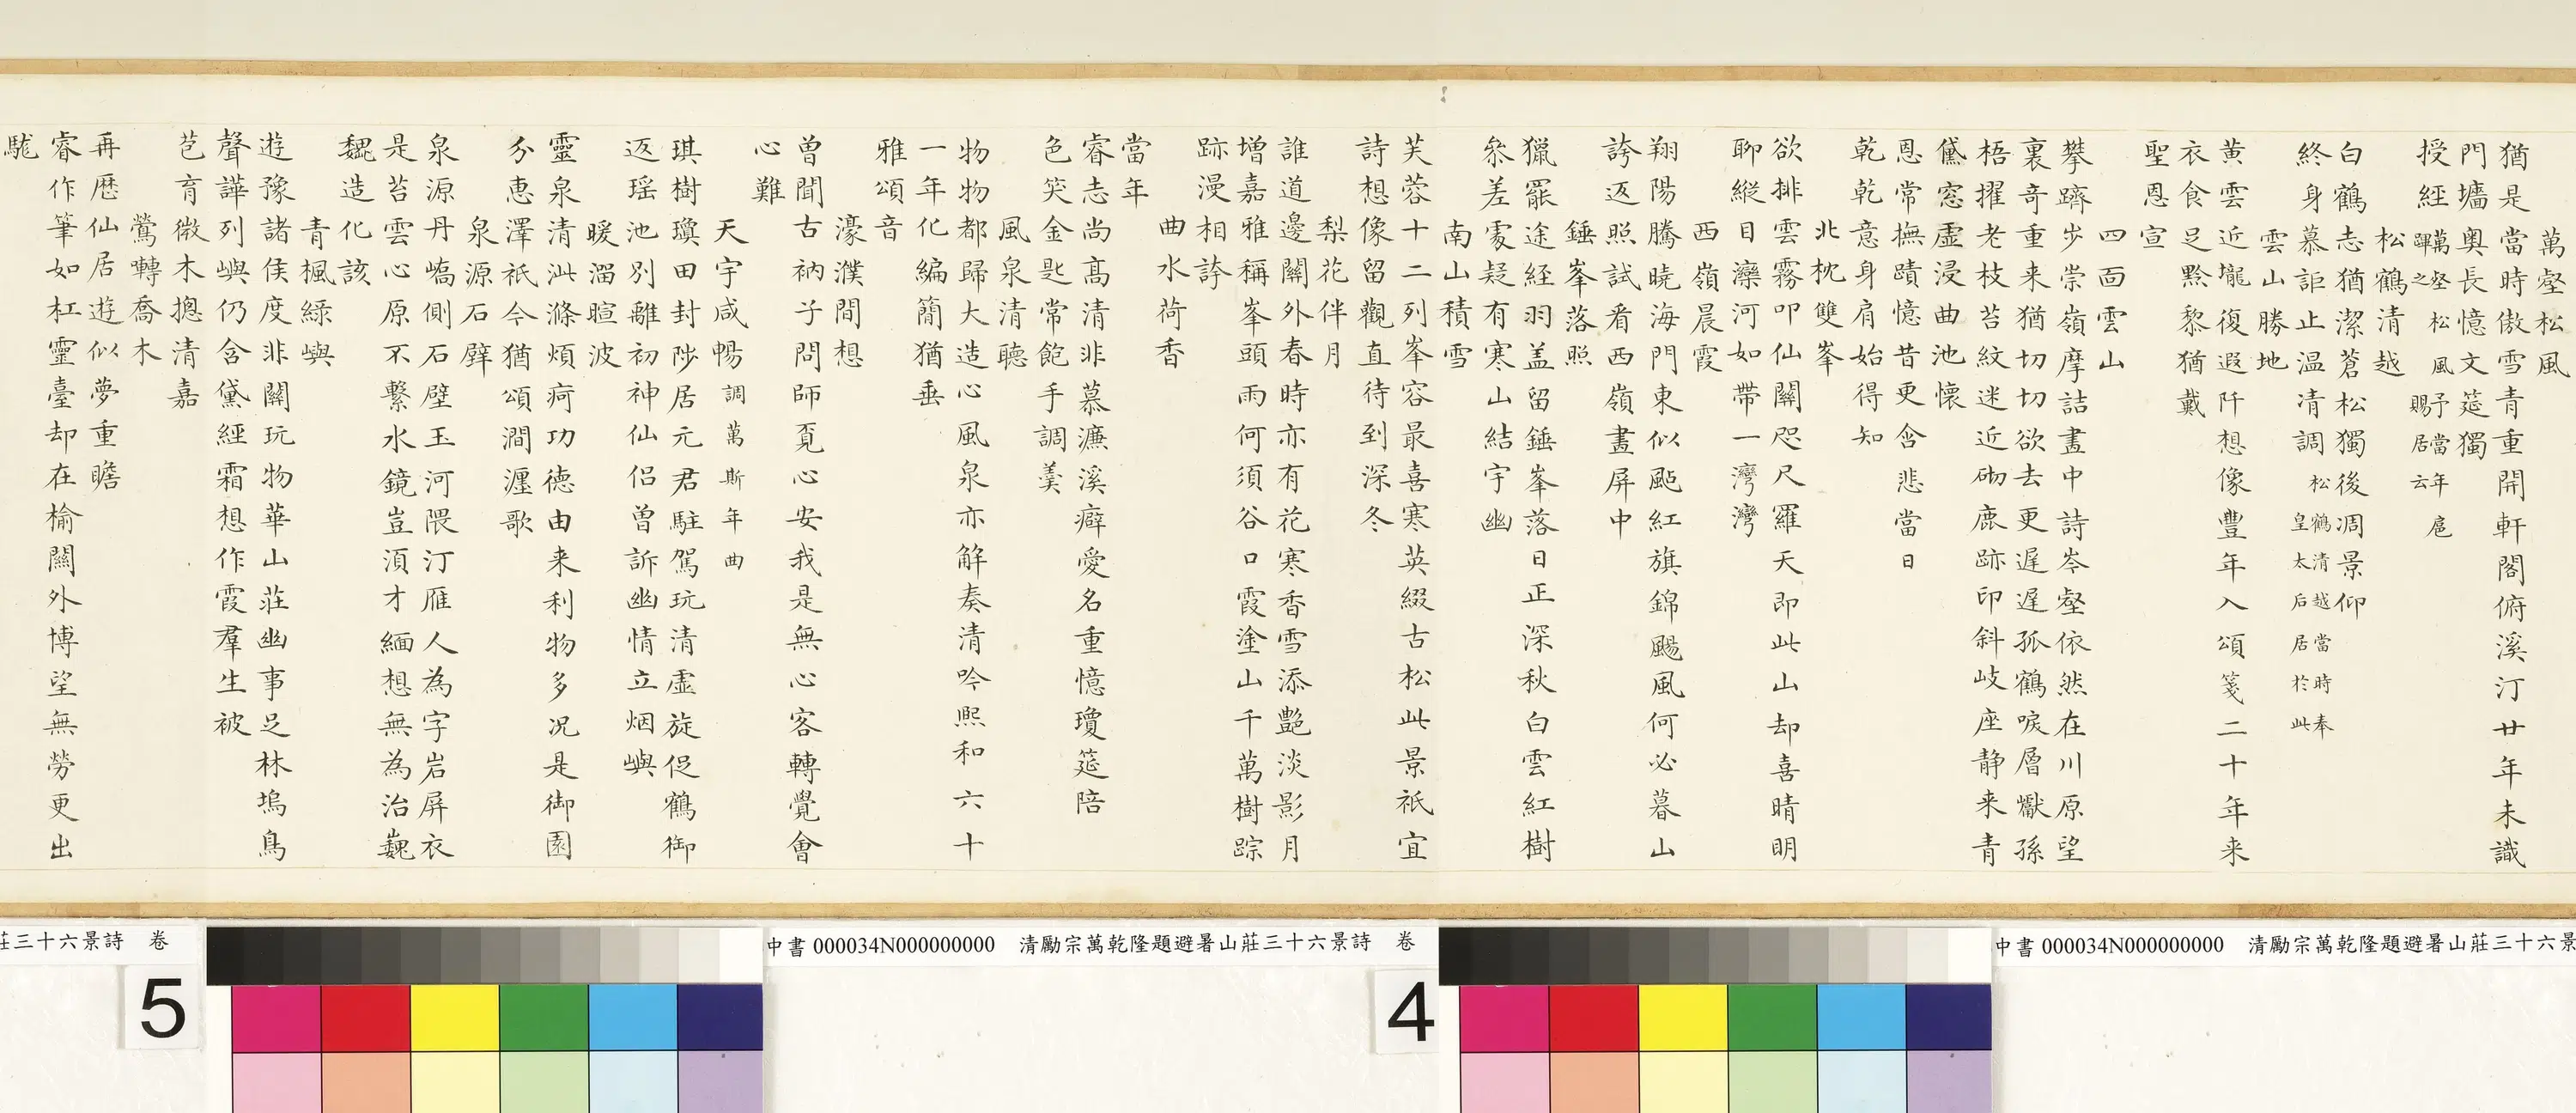 萬壑松風
猶是當時傲雪青重開軒閣俯溪汀廿年未識
門墻奧長憶文筵獨
授經萬壑松風予當年扈蹕之賜居云
松鶴清越
白鶴志猶潔蒼松獨後凋景仰
終身慕詎止温凊調松鶴清越當時奉皇太后居於此
雲山勝地
黃雲近壠復遐阡想像豐年入頌箋二十年来
衣食足黔黎猶戴
聖恩宣
四面雲山
攀躋步崇嶺摩詰畫中詩岑壑依然在川原望
裏奇重来猶切切欲去更遲遲孤鶴唳層巘孫
梧擢老枝苔紋迷近砌鹿跡印斜岐座静来青
黛窓虛浸曲池懷
恩常撫蹟憶昔更含悲當日
乾乾意身肩始得知
北枕雙峯
欲排雲霧叩仙關咫尺羅天即此山却喜晴明
聊縱目灤河如帶一灣灣
西嶺晨霞
翔陽騰曉海門東似颭紅旗錦颺風何必暮山
誇返照試看西嶺畫屏中
錘峯落照
獵罷途經羽盖留錘峯落日正深秋白雲紅樹
叅差處疑有寒山結宇幽
南山積雪
芙蓉十二列峯容最喜寒英綴古松此景祇宜
詩想像留觀直待到深冬
梨花伴月
誰道邊關外春時亦有花寒香雪添艶淡影月
增嘉雅稱峯頭雨何須谷口霞塗山千萬樹踪
跡漫相誇
曲水荷香
當年
睿志尚高清非慕濂溪癖愛名重憶瓊筵陪
色笑金匙常飽手調羹
風泉清聽
物物都歸大造心風泉亦解奏清吟熙和六十
一年化編簡猶垂
雅頌音
濠濮間想
曾聞古衲子問師覔心安我是無心客轉覺會
心難
天宇咸暢調萬斯年曲
琪樹瓊田封陟居元君駐駕玩清虛旋促鶴御
返瑶池別離初神仙侣曾訴幽情立烟嶼
暖溜暄波
靈泉清泚滌煩疴功德由来利物多况是御園
分惠澤祇今猶頌澗瀍歌
泉源石壁
泉源丹嶠側石壁玉河隈汀雁人為字岩屏衣
是苔雲心原不繫水鏡豈湏才緬想無為治巍
巍造化該
青楓緑嶼
遊豫諸侯度非關玩物華山莊幽事足林塢鳥
聲譁列嶼仍含黛經霜想作霞羣生被
芭育微木摠清嘉
鶯囀喬木
再歷仙居遊似夢重瞻
睿作筆如杠靈臺却在榆關外博望無勞更出
駹
莊三十六景詩　卷
5
中書000034N000000000　清勵宗萬乾隆題避暑山莊三十六景詩　卷
4
中書000034N000000000　清勵宗萬乾隆題避暑山莊三十六景